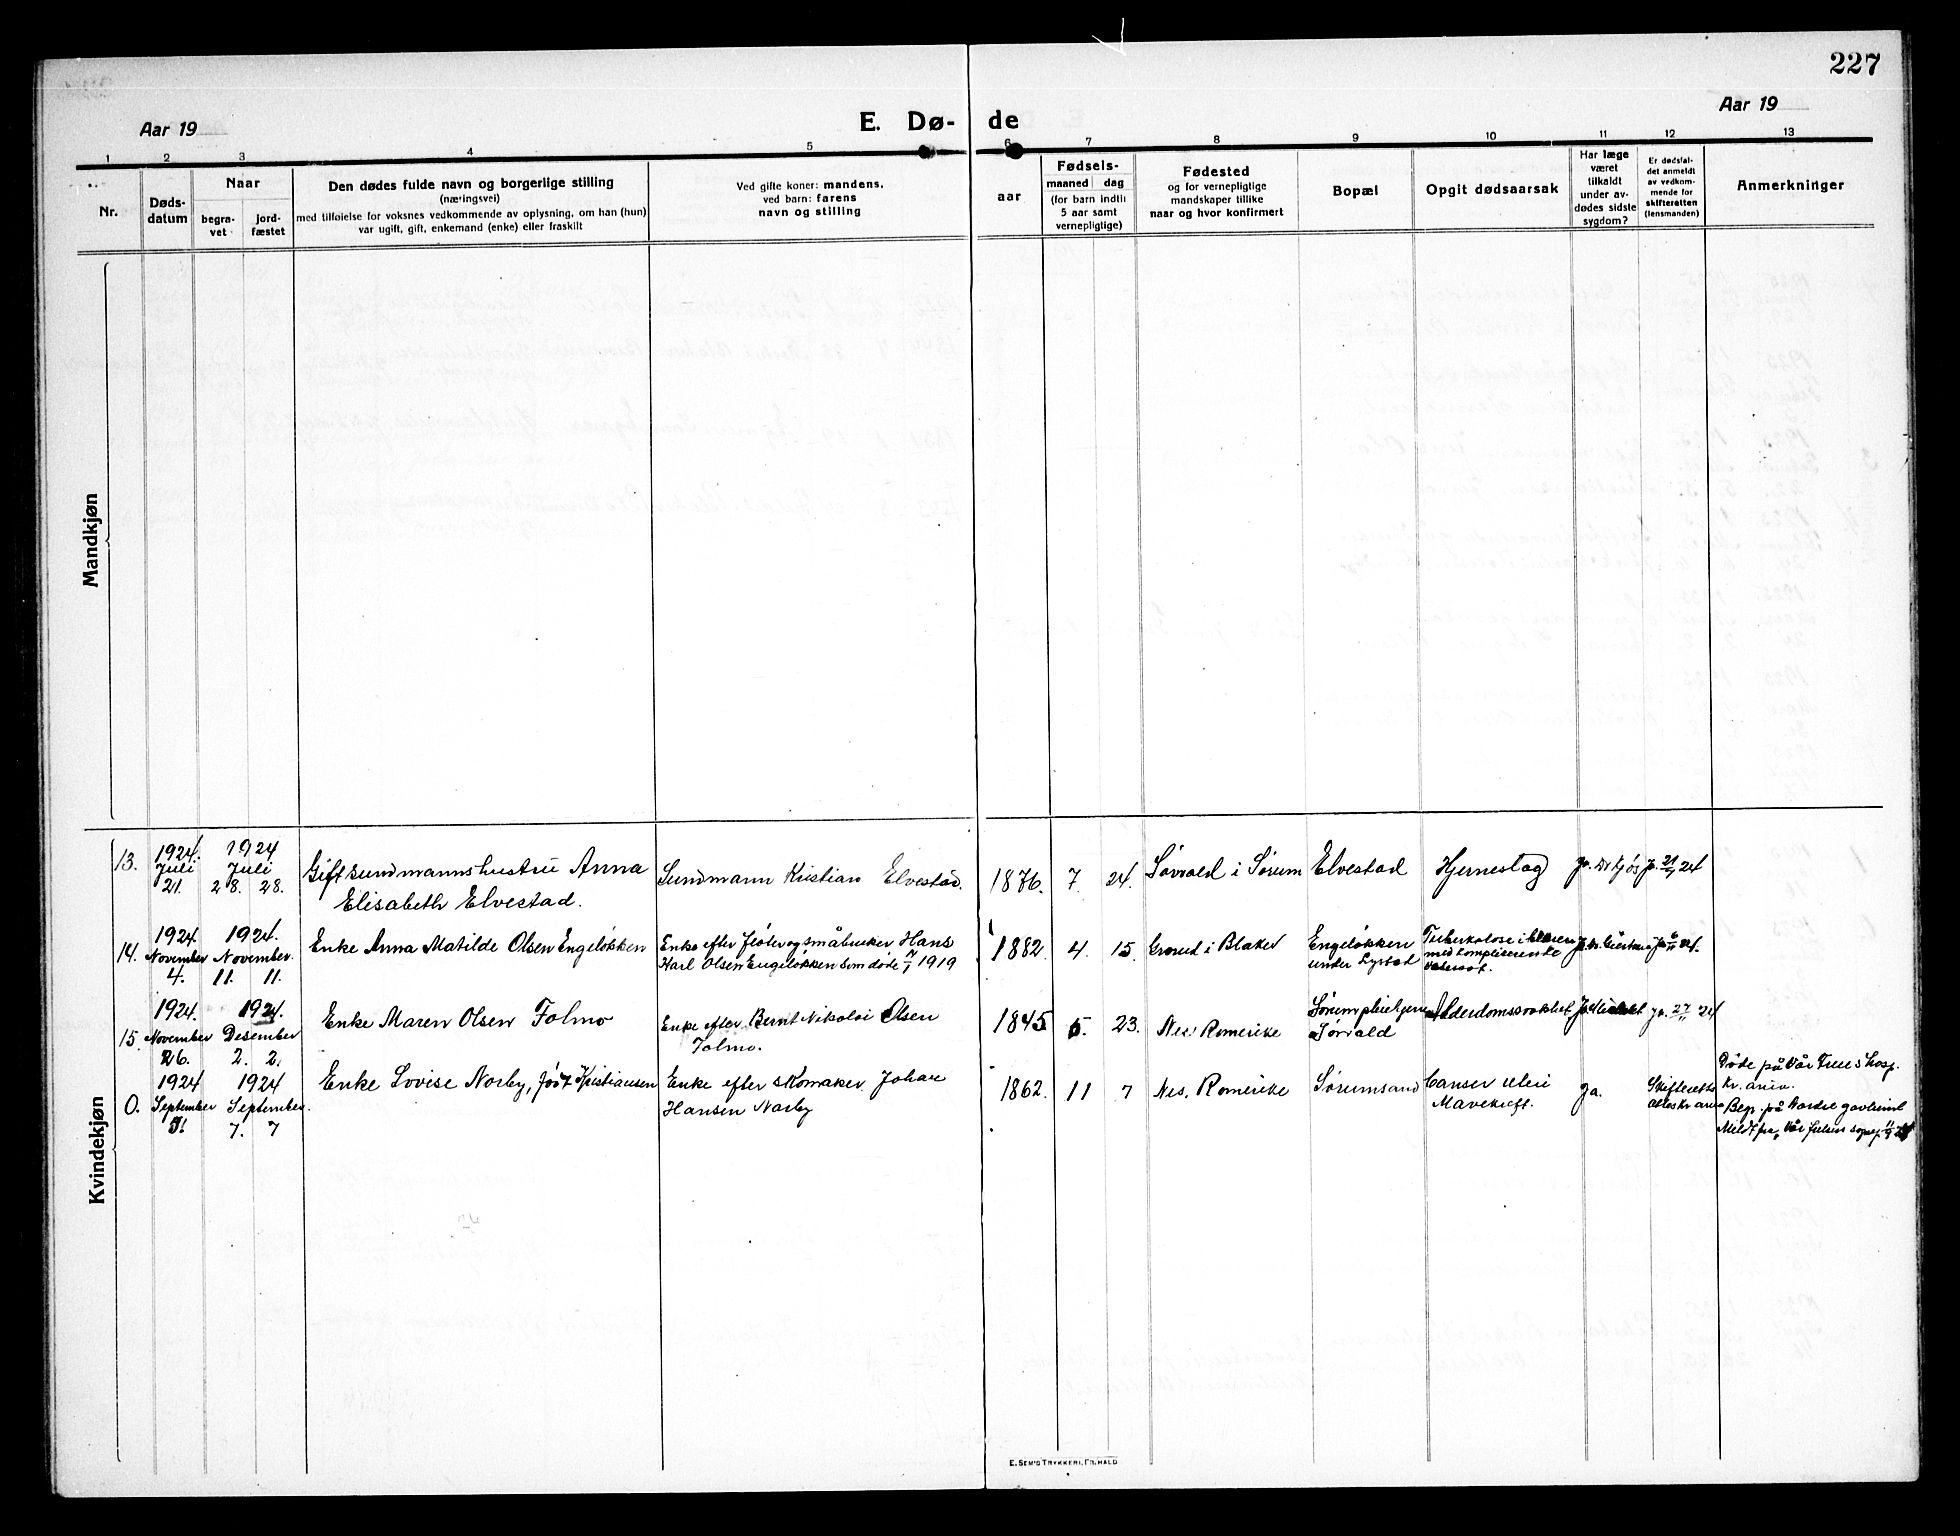 227
Aar 19
E. Dø- de
Aar 19
1 2 3 4 5 6 7 8 9 10 11 12 13
Nr.
Døds-
datum
Naar
begra-
vet
jord-
fæstet
Den dødes fulde navn og borgerlige stilling
(næringsvei)
med tilføielse for voksnes vedkommende av oplysning, om han (hun)
var ugift, gift, enkemand (enke) eller fraskilt
Ved gifte koner: mandens,
ved barn: farens
navn og stilling
aar
Fødsels-
maaned dag
(for barn indtil
5 aar samt
vernepligtige)
Fødested
og for vernepligtige
mandskaper tillike
naar og hvor konfirmert
Bopæl
Opgit dødsaarsak
Har læge
været
tilkaldt
under av-
dødes sidste
sygdom?
Er dødsfal-
det anmeldt
av vedkom-
mende for
skifteretten
(lensmanden)
Anmerkninger
Mandkjøn
Kvindekjøn
13.
1924.
Juli
21.
1924
Juli
28. 28.
Gift sundmannshustru Anna
Elisabeth Elvestad.
Sundmann Kristian Elvestad.
1876. 7. 24.
Sørvald i Sørum
Elvestad
Hjerneslag
Ja.
14.
1924.
November
4.
1924.
November.
11. 11.
Enke Anna Matilde Olsen Engeløkken
Enke efter fløter og småbruker Hans
Karl Olsen Engeløkken som døde 1919
1882. 4. 15.
Grorud i Blaker
Engeløkken
under
Tuberkolose i
med kompliserente
15.
1924.
November
26.
1924.
Desember
2. 2.
Enke Maren Olsen Folmo
Enke efter Bernt Nikolai Olsen
Folmo.
1845 5. 23.
Nes Romerike
Sørum pleiehjem
Sørvald
Alderdomssvakhet
Ja
ja. 27/11 24
0.
1924
September
1924
September.
7. 7
Enke Lovise Norby, født Kristiansen
Enke efter skomaker Johan
Hansen Norby
1862. 11 7
Nes, Romerike
Sørumsand
Canser
Mavekreft.
Ja.
Døde på Vår Frues hosp.
Kr.ania.
Begr. på Nordre gravlund
Meldt fra Vår
E. SEM'S TRYKKERI, FR.HALD